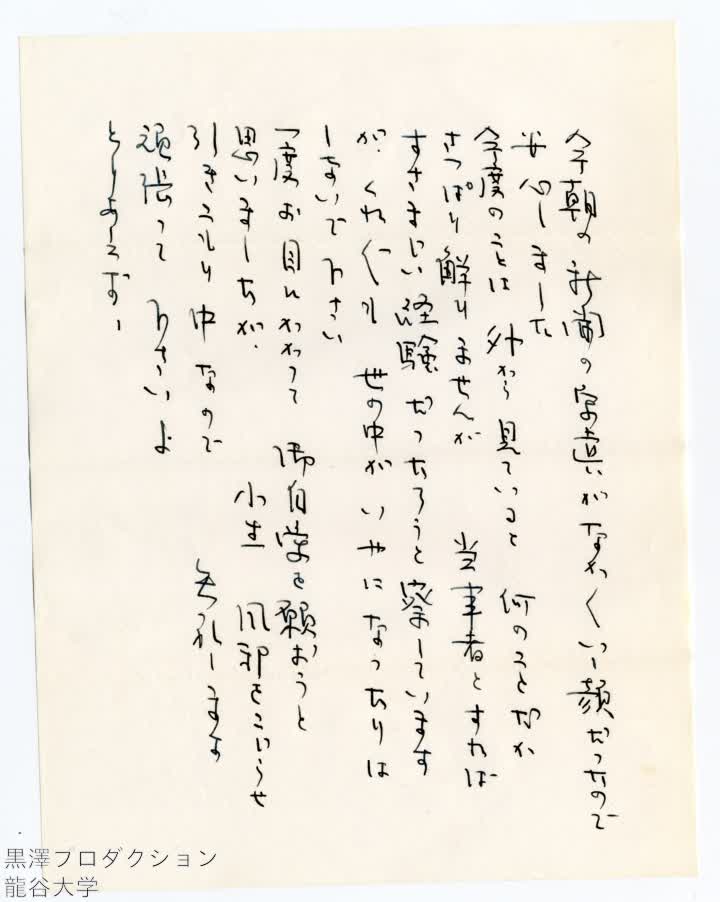 今朝の新聞の写真がなかくいゝ顔だったので
安心しました
今度のことは 外から見ていると 何のことなか
さっぱり解りませんが 当事者とすれば
すさまじい経験だったろうと察しています
が、くれぐれも 世の中がいやになったりは
しないで下さい
一度お目にかかって 御自愛を願おうと
思いましたが、 小生 風邪をこじらせ
引きこもり中なので 失礼します
頑張って 下さいよ
とりあえず、
黒澤プロダクション
龍谷大学